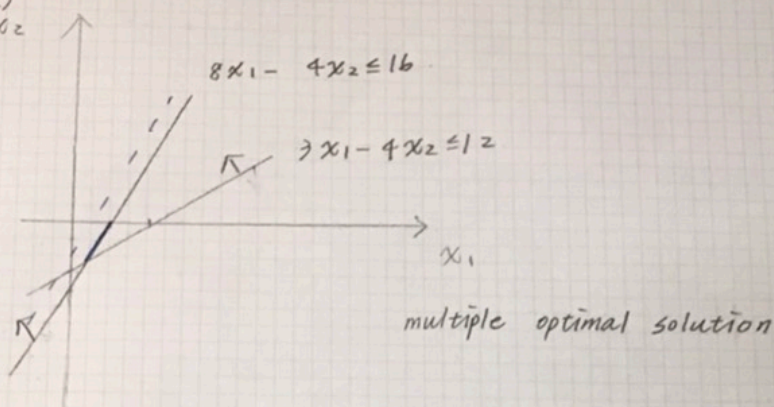 x₂
8x₁ - 4x₂ ≤ 16
3x₁ - 4x₂ ≤ 12
x₁
multiple optimal solution